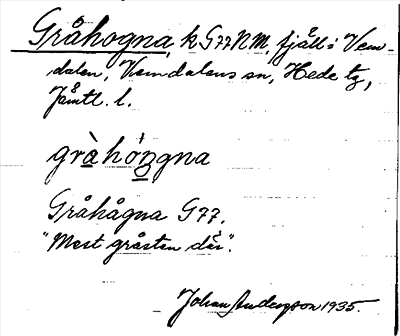 Gråhogna, k G77NM, fjäll i Vem-
dalen, Vemdalens sn, Hede tg,
Jämtl. l.
gràhóngna
Gråhågna G77.
"Mest gråsten där".
Johan Anderson 1935.